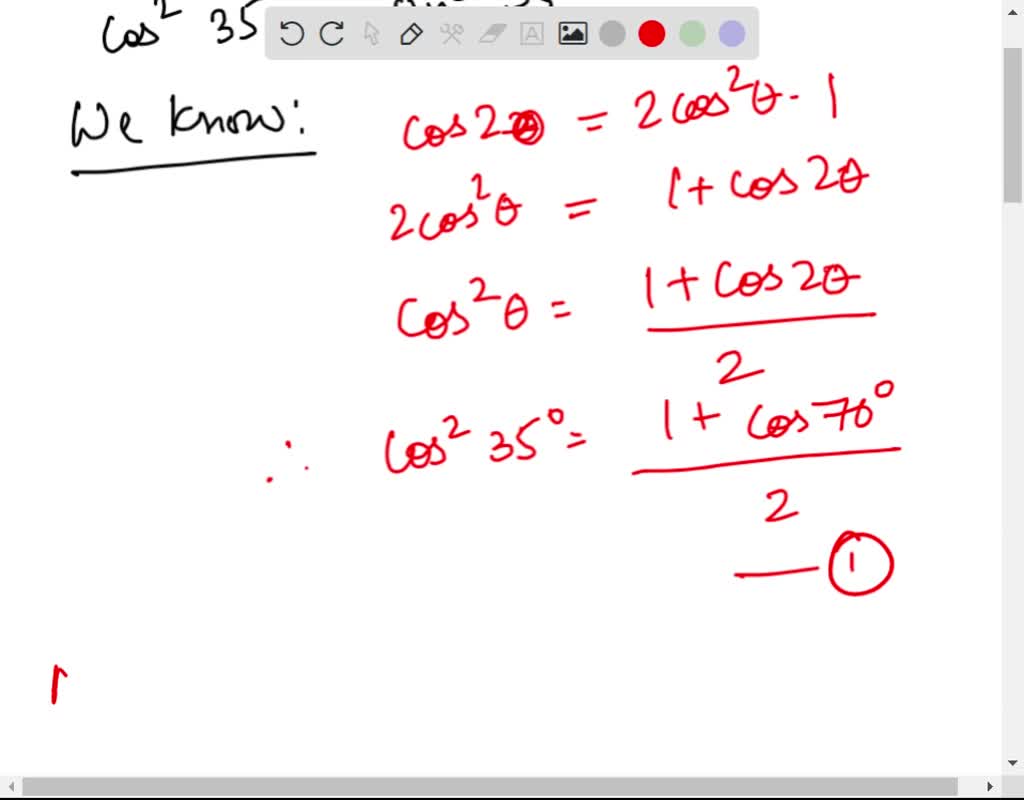 cos² 35
We know:
cos2θ = 2cos²θ - 1
2cos²θ = 1 + cos2θ
cos²θ = 1 + cos2θ / 2
∴ cos² 35° = 1 + cos70° / 2
— ①